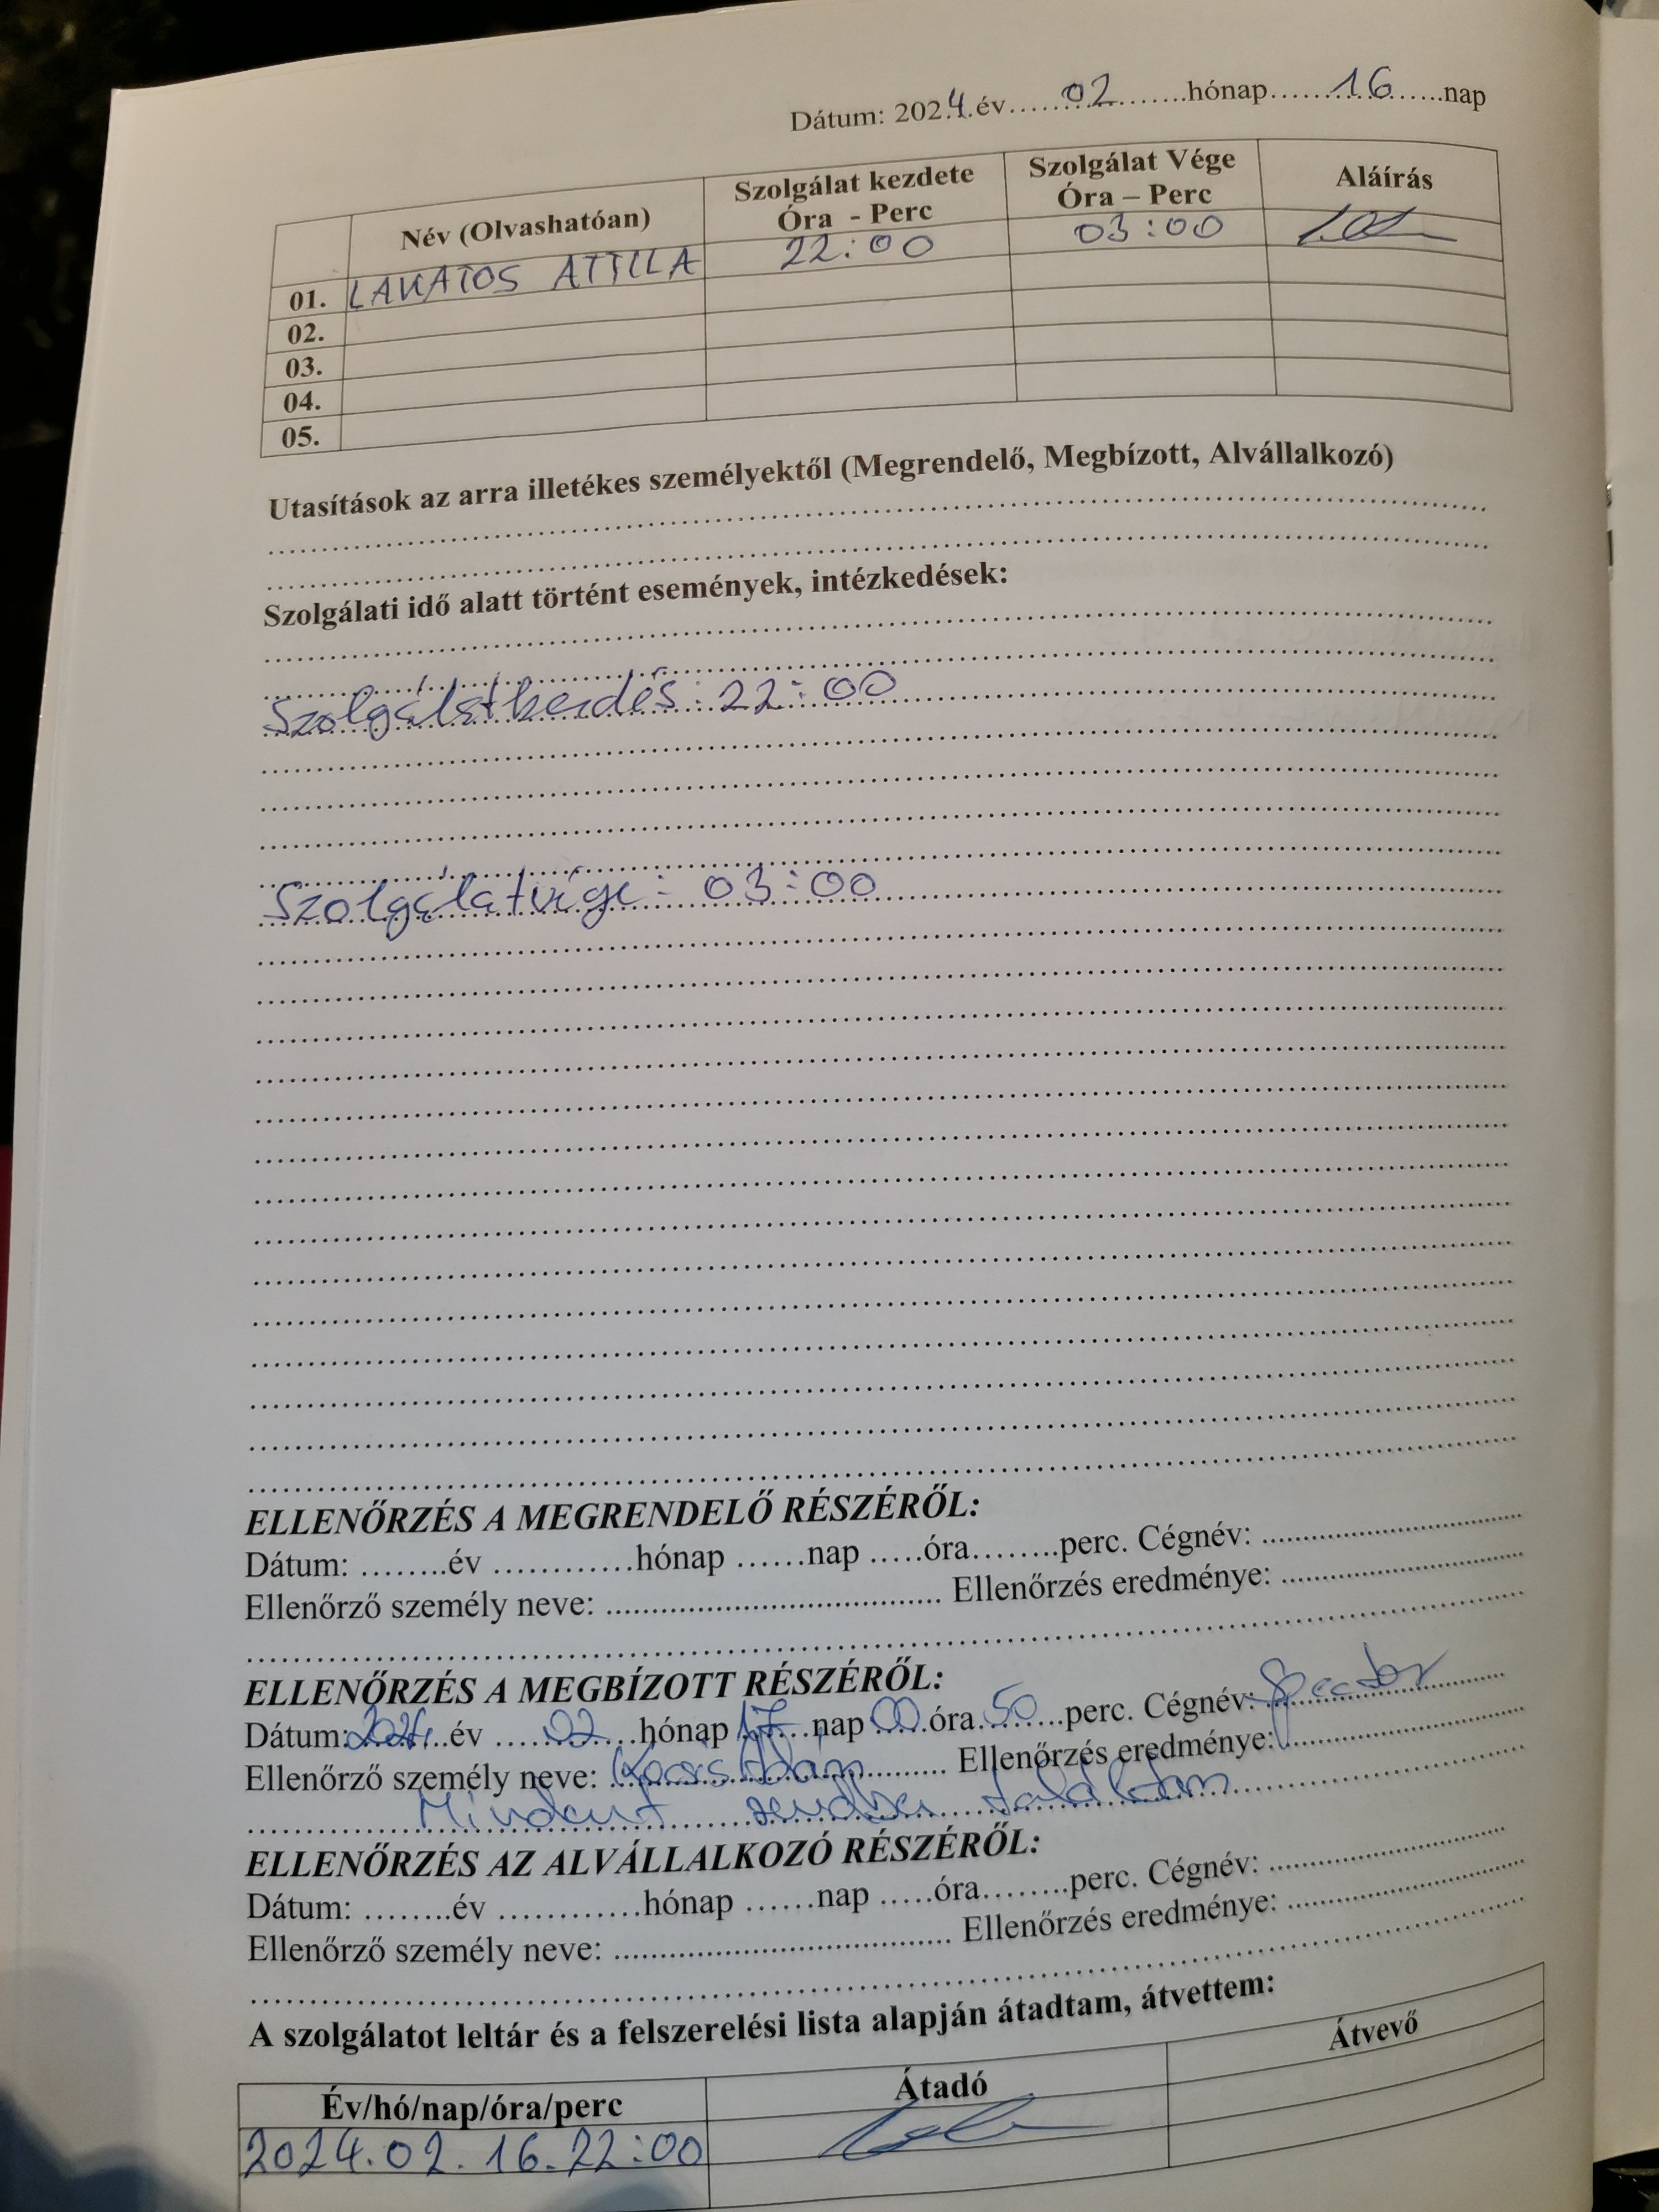 Dátum: 2024.év......02......hónap......16......nap
Név (Olvashatóan) Szolgálat kezdete Óra - Perc Szolgálat Vége Óra – Perc Aláírás
01. LAKATOS ATTILA 22:00 03:00
02.
03.
04.
05.
Utasítások az arra illetékes személyektől (Megrendelő, Megbízott, Alvállalkozó)
Szolgálati idő alatt történt események, intézkedések:
Szolgálatkezdés: 22:00
Szolgálatvége: 03:00
ELLENŐRZÉS A MEGRENDELŐ RÉSZÉRŐL:
Dátum: ........év ............hónap ......nap .....óra........perc. Cégnév: ..............................
Ellenőrző személy neve: ..................................... Ellenőrzés eredménye: ...........................
ELLENŐRZÉS A MEGBÍZOTT RÉSZÉRŐL:
Dátum: 2024. év 02 hónap 17 nap 00 óra 50 perc. Cégnév:
Ellenőrző személy neve: Kocsis Ádám Ellenőrzés eredménye:
Mindent rendben találtam
ELLENŐRZÉS AZ ALVÁLLALKOZÓ RÉSZÉRŐL:
Dátum: ........év ............hónap ......nap .....óra........perc. Cégnév: ..............................
Ellenőrző személy neve: ..................................... Ellenőrzés eredménye: ...........................
A szolgálatot leltár és a felszerelési lista alapján átadtam, átvettem:
Év/hó/nap/óra/perc Átadó Átvevő
2024.02.16.22:00